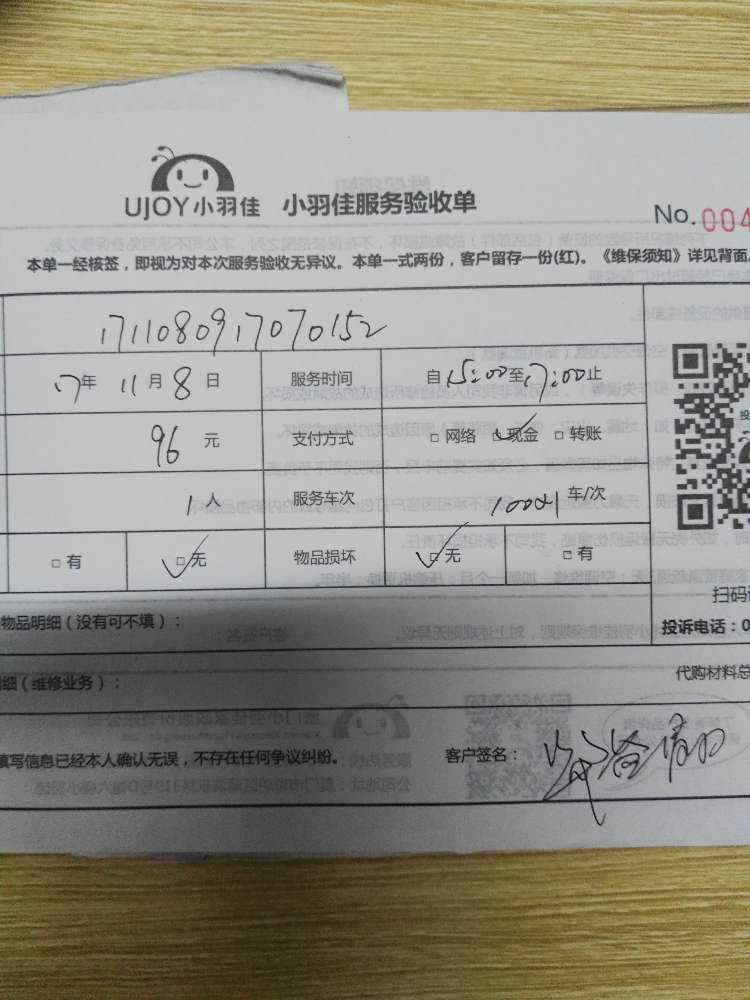 UJOY小羽佳 小羽佳服务验收单
No.004
本单一经核签，即视为对本次服务验收无异议。本单一式两份，客户留存一份(红)。《维保须知》详见背面。
1711080917070152
17年 11月8日 服务时间 自15:00至17:00止
96元 支付方式 □网络 □现金 □转账
1人 服务车次 车/次
□有 □无 物品损坏 □无 □有
扫码
物品明细（没有可不填）：
投诉电话：0
细（维修业务）：
代购材料总
填写信息已经本人确认无误，不存在任何争议纠纷。 客户签名：